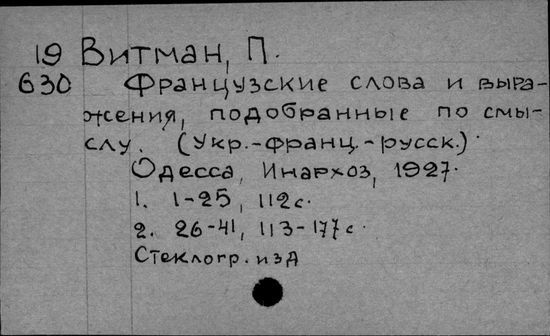 19 Витман, П.
630 Французские слова и выра-
жения, подобранные по смы-
слу. (Укр.-франц.-русск.)
Одесса, Инархоз, 1927.
1. 1-25, 112с.
2. 26-41, 113-177с.
Стеклогр. изд